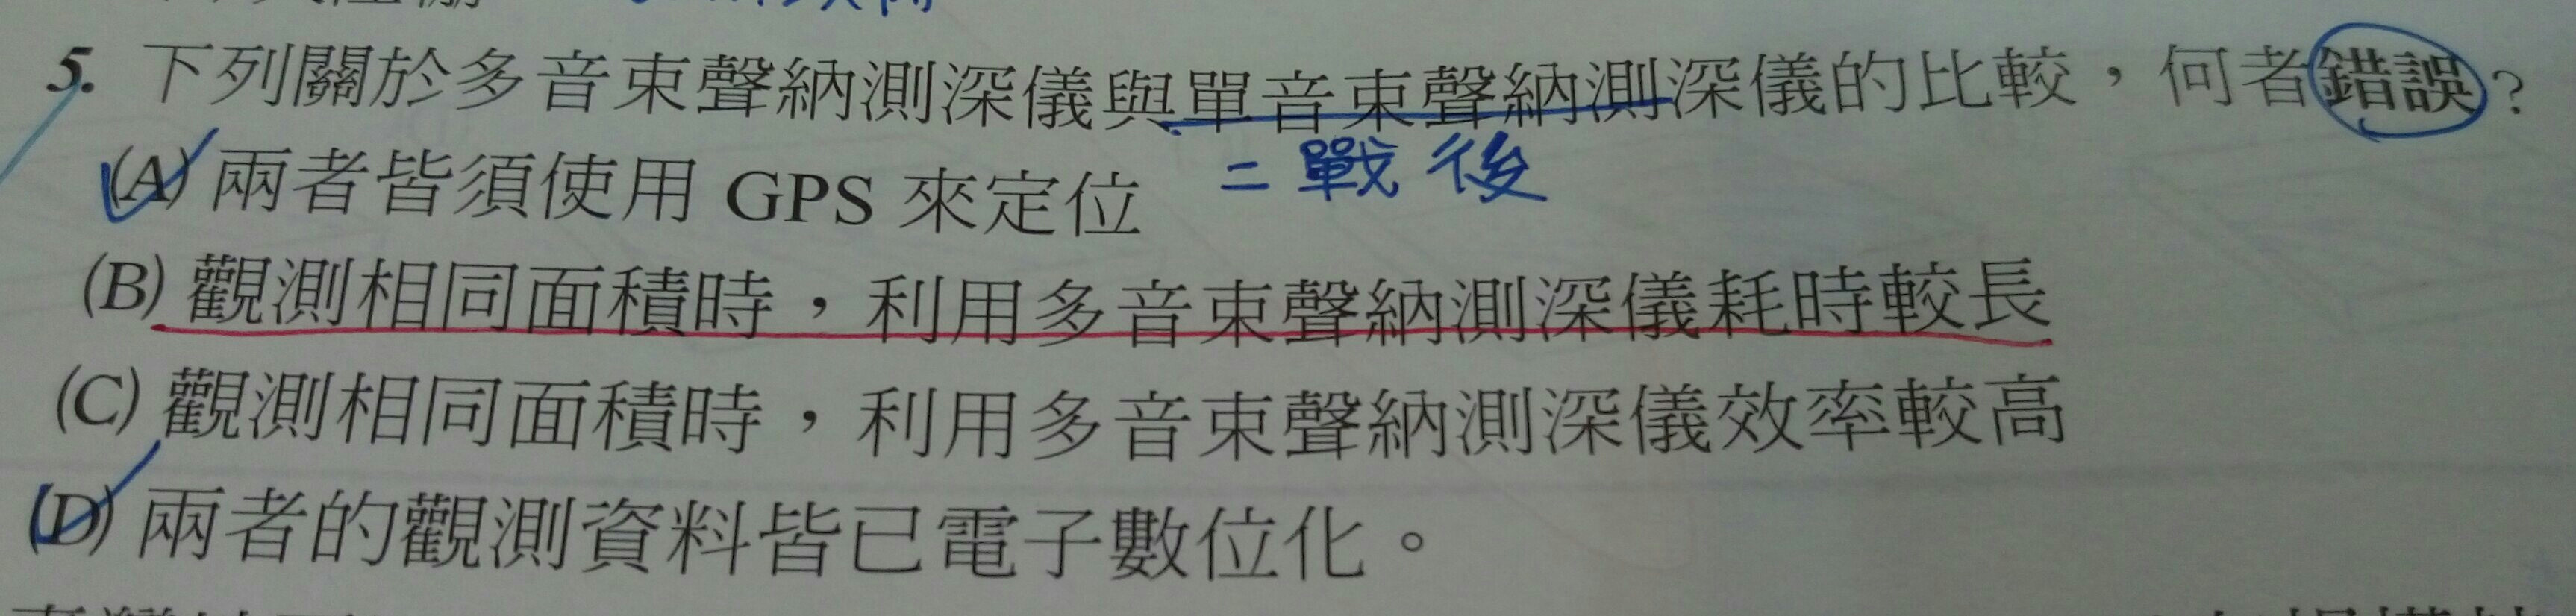 5. 下列關於多音束聲納測深儀與單音束聲納測深儀的比較，何者錯誤？
=戰後
(A) 兩者皆須使用 GPS 來定位
(B) 觀測相同面積時，利用多音束聲納測深儀耗時較長
(C) 觀測相同面積時，利用多音束聲納測深儀效率較高
(D) 兩者的觀測資料皆已電子數位化。